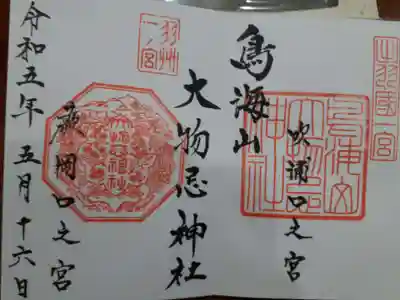 出羽國一宮
吹浦口之宮
鳥海山
大物忌神社
羽州
一宮
蕨岡口之宮
令和五年五月十六日